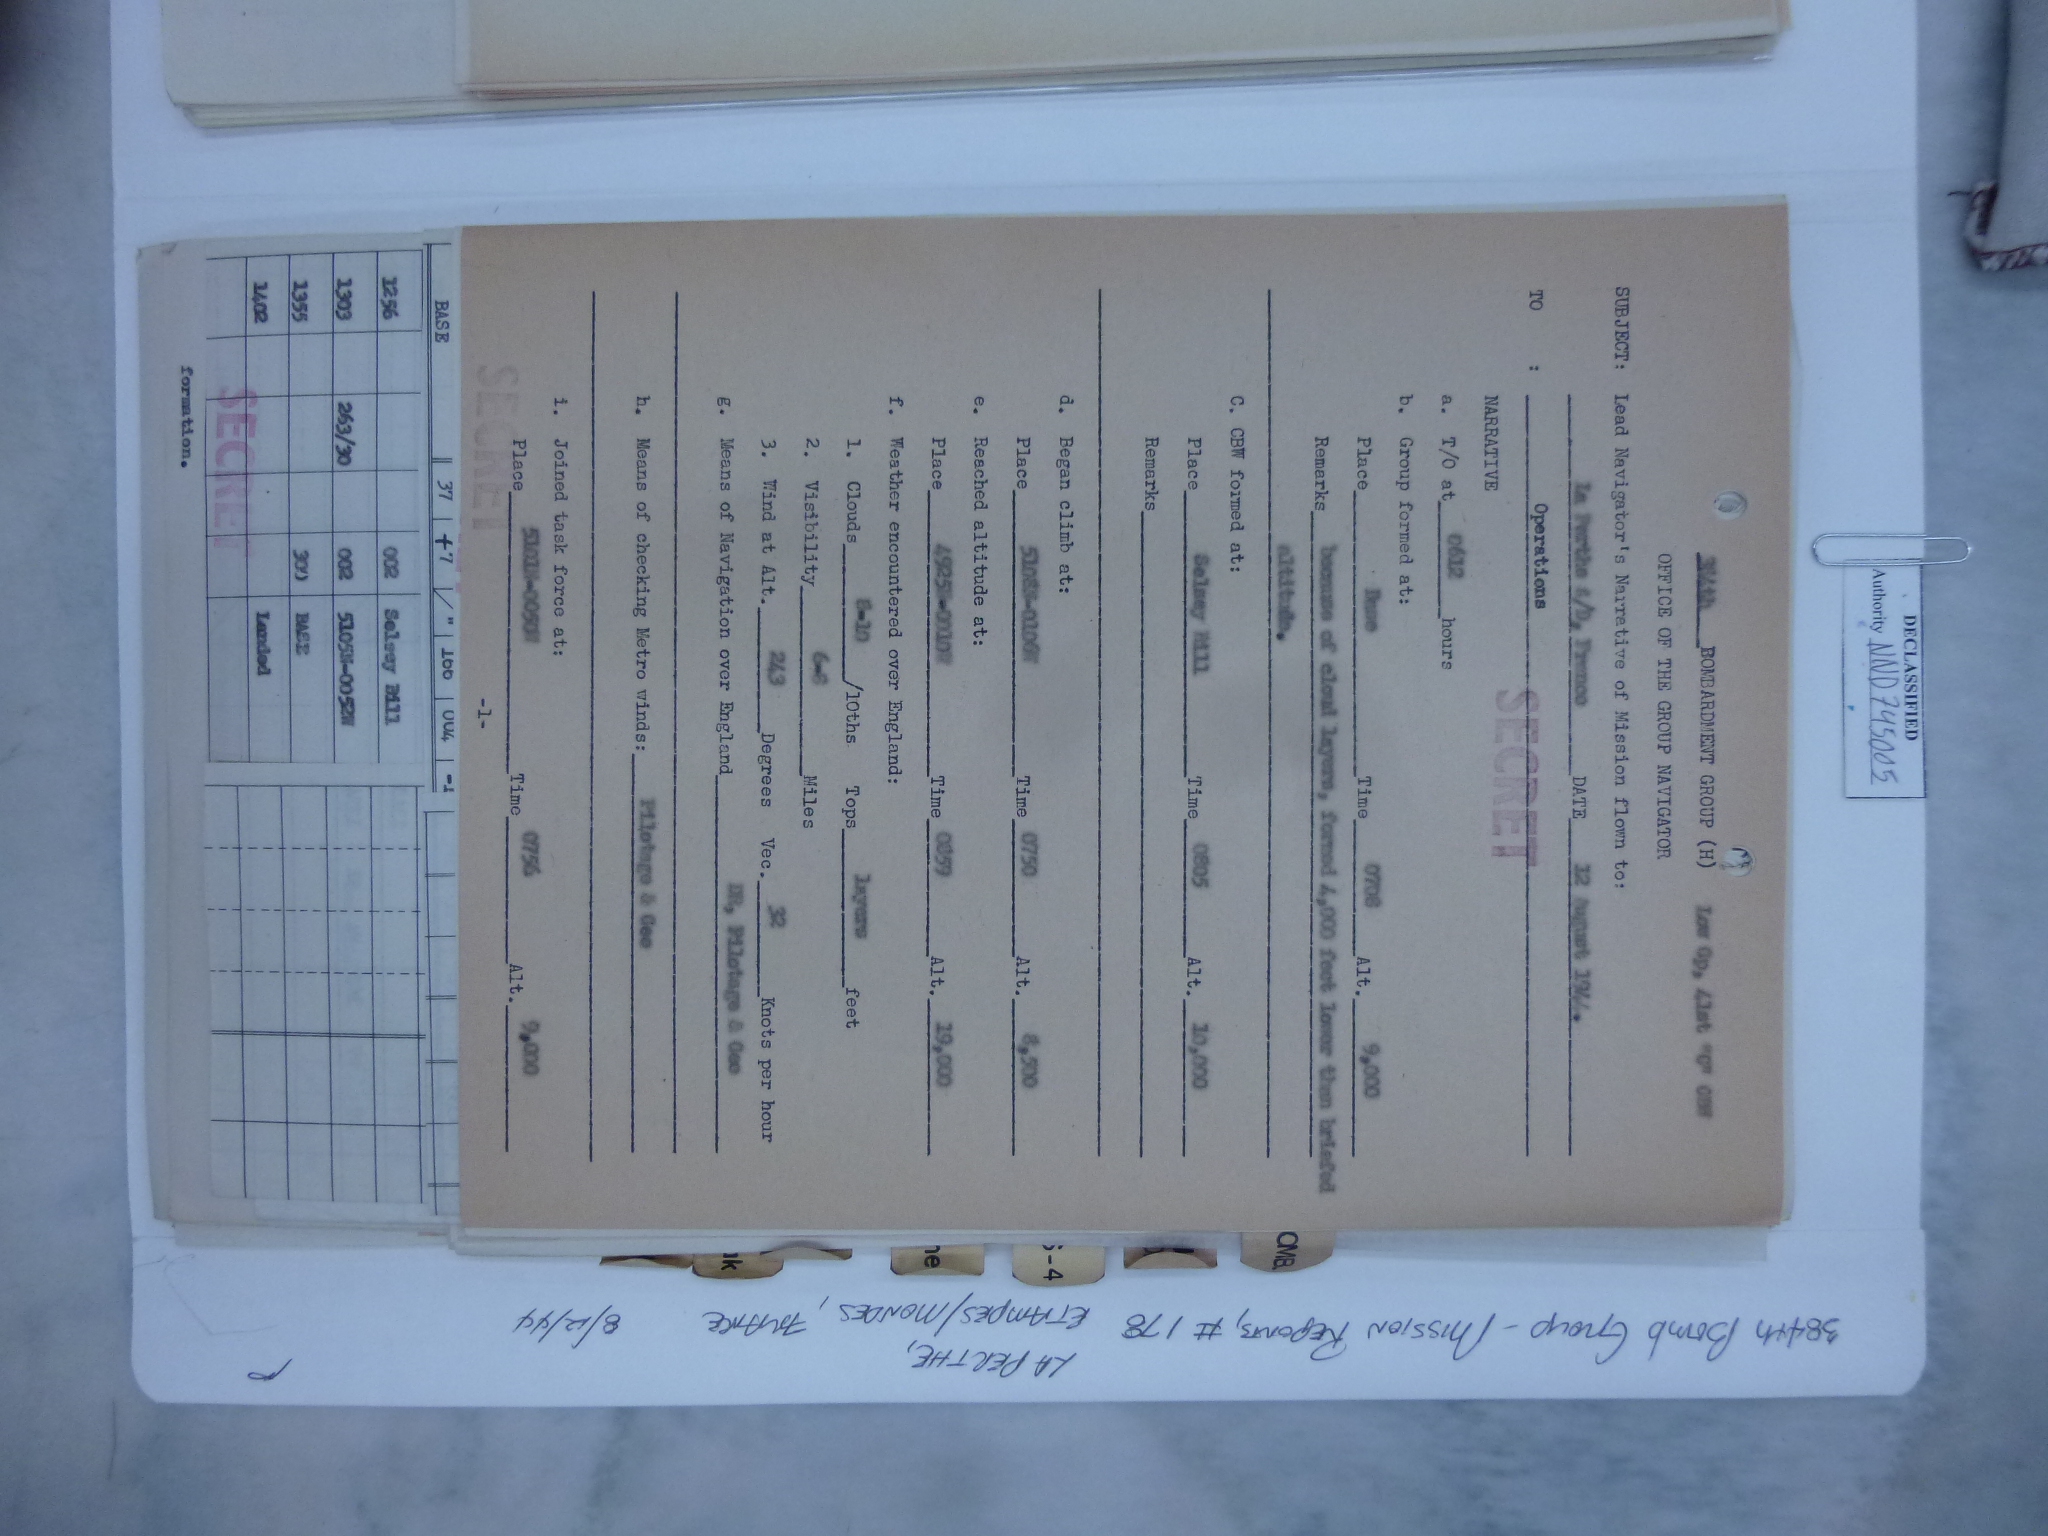 DECLASSIFIED
Authority NND 745005
384th BOMBARDMENT GROUP (H) Low Gp, 41st "C" CBW
OFFICE OF THE GROUP NAVIGATOR
SUBJECT: Lead Navigator's Narrative of Mission flown to:
La Perthe A/D, France DATE 12 August 1944.
TO : Operations
SECRET
NARRATIVE
a. T/O at 0612 hours
b. Group formed at:
Place Time 0708 Alt. 9,000
Remarks because of cloud layers, formed 4,000 feet lower than briefed
altitude.
C. CBW formed at:
Place Selsey Bill Time 0805 Alt. 10,000
Remarks
d. Began climb at:
Place Time 0750 Alt. 8,500
e. Reached altitude at:
Place 4925N-0710W Time 0859 Alt. 19,000
f. Weather encountered over England:
1. Clouds 8-10 /10ths Tops layers feet
2. Visibility Miles
3. Wind at Alt. 243 Degrees Vec. 32 Knots per hour
g. Means of Navigation over England DR, Pilotage & Gee
h. Means of checking Metro winds: Pilotage & Gee
i. Joined task force at:
Place 5101N-0050W Time 0756 Alt. 9,000
-1-
SECRET
BASE 37 +7 100 004 -1
1256 002 Selsey Bill
1303 263/30 002 5105N-0052W
1355 300 BASE
1402 Landed
SECRET
formation.
CMB.
S-4
ne
nk
384th Bomb Group - Mission Reports, # 178 LA PERTHE, ETAMPES/MONDES, FRANCE 8/12/44